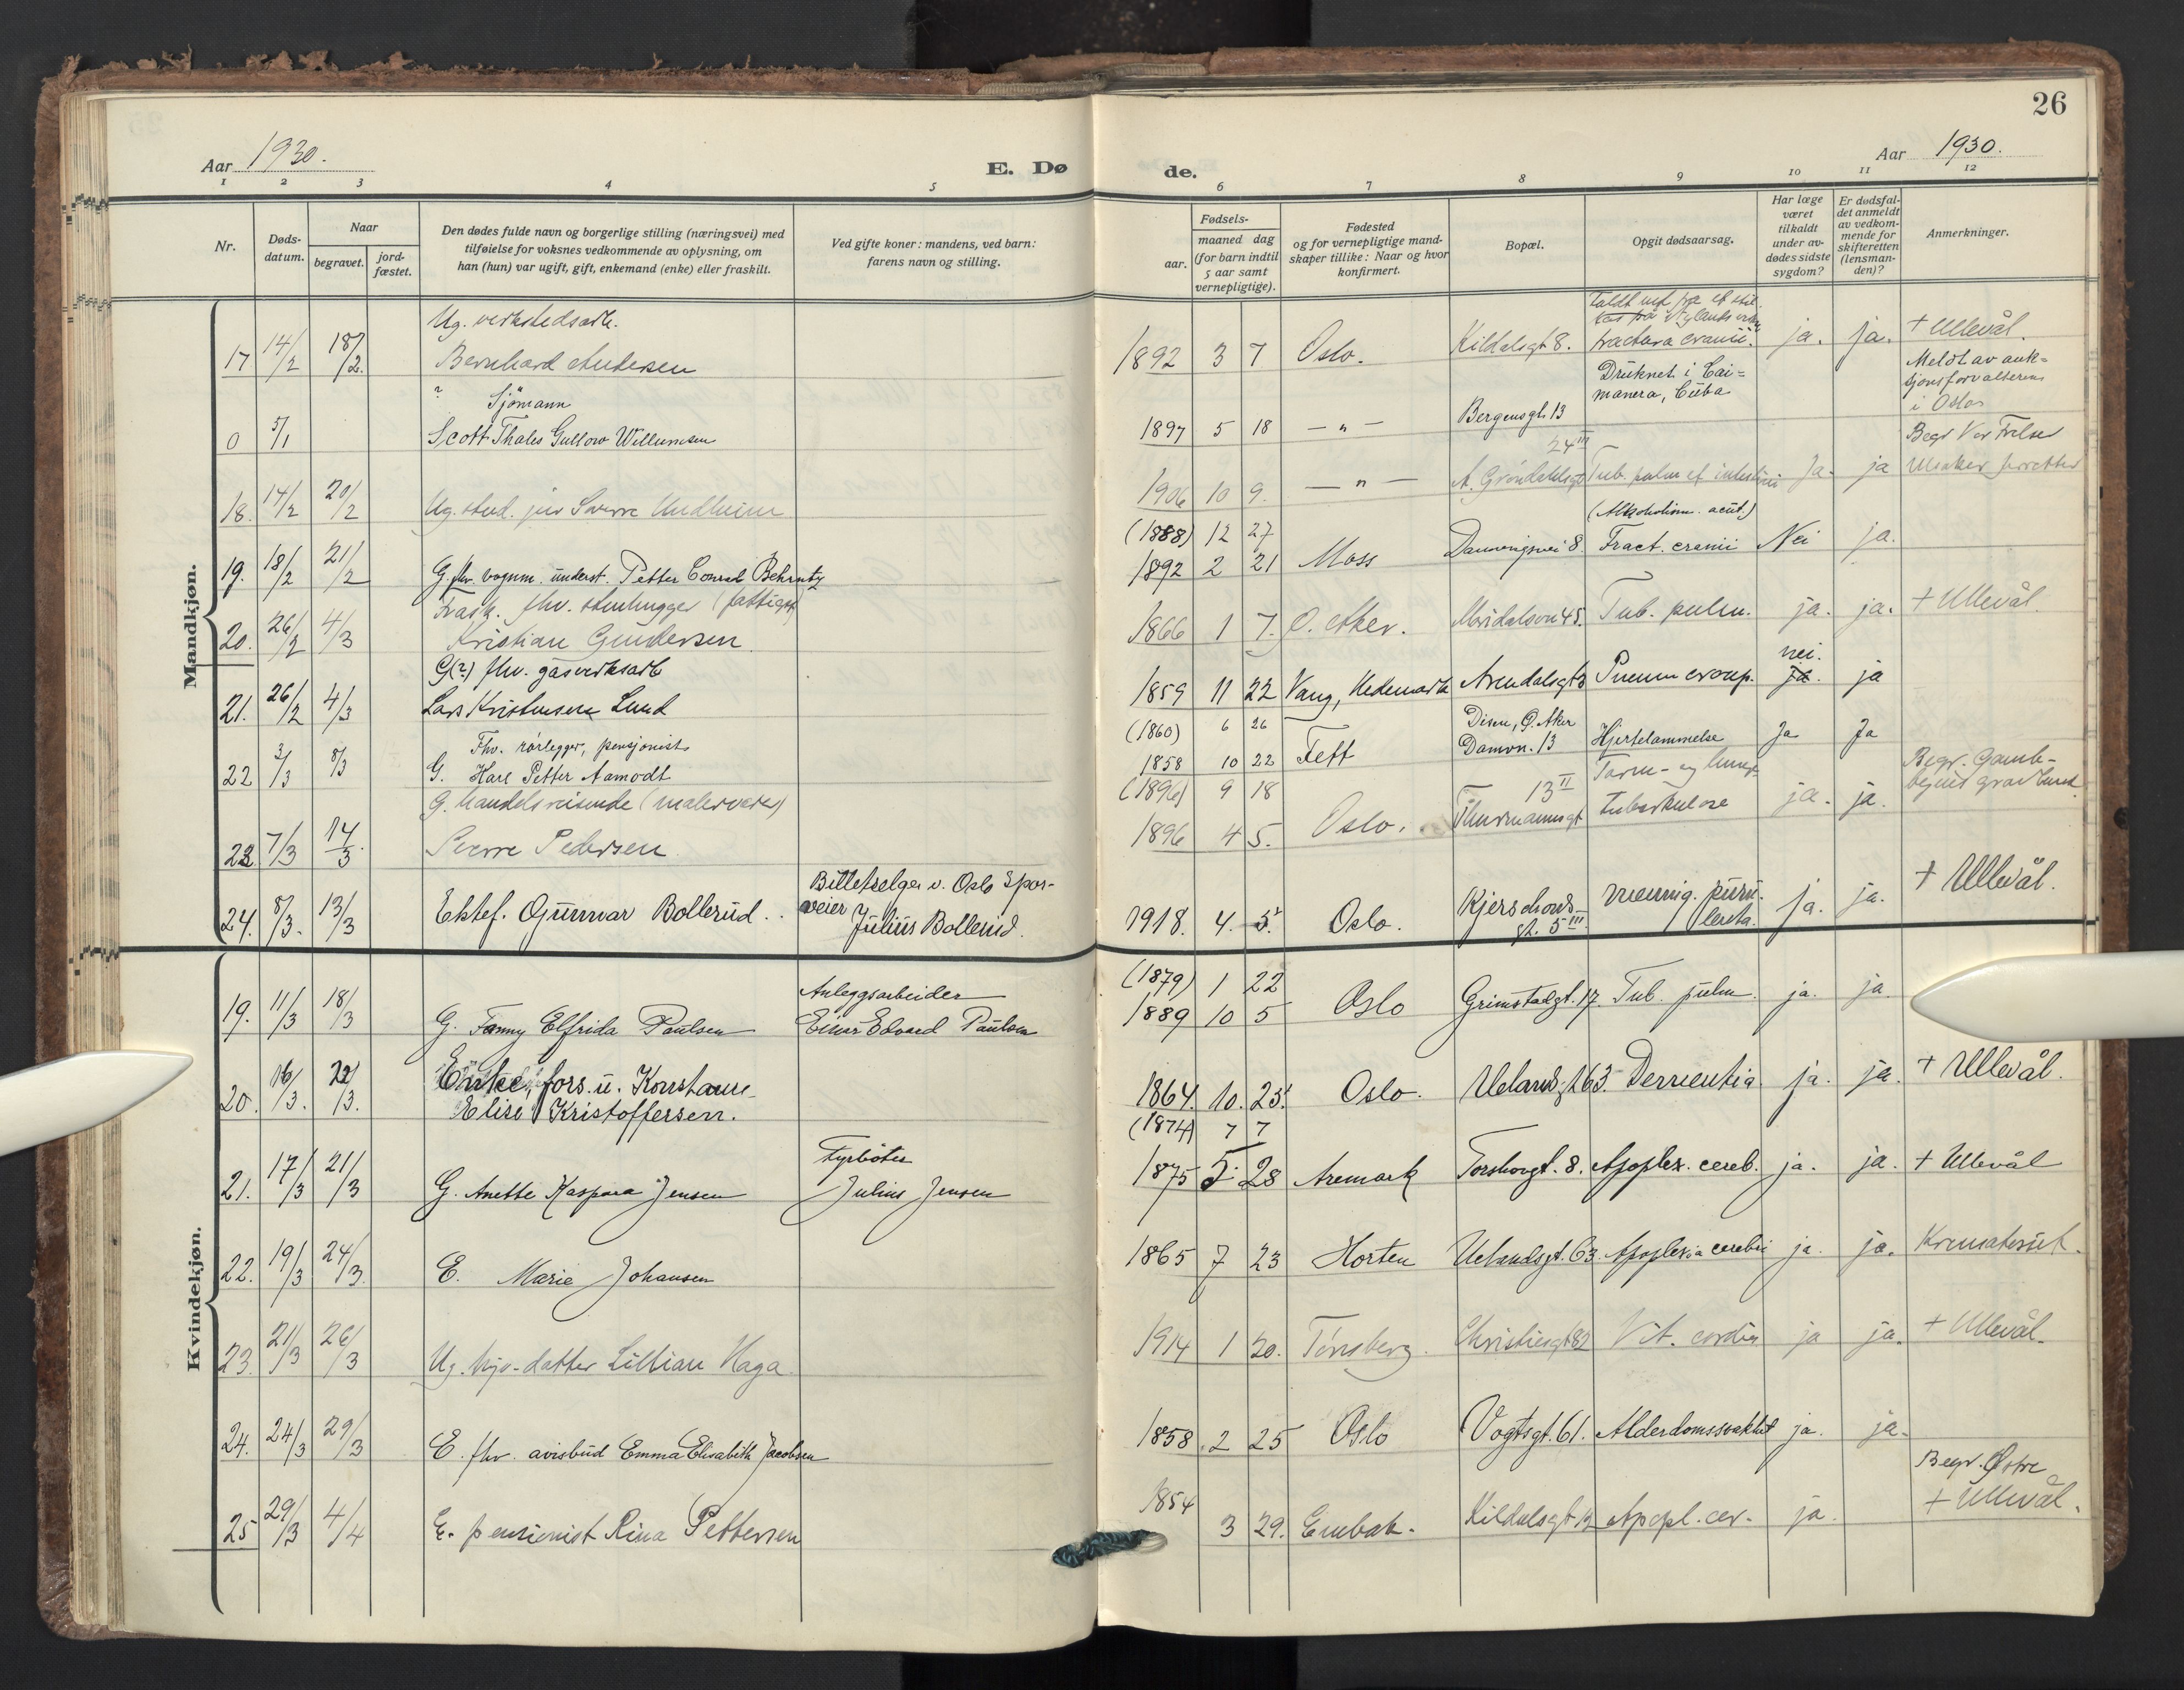 26
Aar 1930.
E. Dø de.
Aar 1930.
1 2 3 4 5 6 7 8 9 10 11 12
Nr.
Døds-
datum.
Naar
begravet.
jord-
fæstet.
Den dødes fulde navn og borgerlige stilling (næringsvei) med
tilføielse for voksnes vedkommende av oplysning, om
han (hun) var ugift, gift, enkemand (enke) eller fraskilt.
Ved gifte koner: mandens, ved barn:
farens navn og stilling.
Fødsels-
aar.
maaned dag
(for barn indtil
5 aar samt
vernepligtige).
Fødested
og for vernepligtige mand-
skaper tillike: Naar og hvor
konfirmert.
Bopæl.
Opgit dødsaarsag.
Har læge
været
tilkaldt
under av-
dødes sidste
sygdom?
Er dødsfal-
det anmeldt
av vedkom-
mende for
skifteretten
(lensman-
den)?
Anmerkninger.
Mandkjøn.
17 14/2 18/2. Ug. verkstedsarb.
Bernhard Andersen
1892 3 7 Oslo. Kildalsgt 8. fractura cranii. ja. ja. + Ullevål.
0 5/1 ? Sjømann
Scott Thales Gullow Willumsen
1897 5 18 — " — Bergensgt. 13
Druknet i Cai=
manera, Cuba
Meldt av auk=
sjonsforvalteren
i Oslo
18. 14/2 20/2 Ug. stud. jur Sverre Undheim
1906 10 9. — " — A. Grøndahlsgt 24 III Tub. pulm et intestini Ja. ja
Begr Vor Frelser
19. 18/2 21/2 G. fhv. vognm. underst. Petter Conrad Behrntz
(1888) 12 27
1892 2 21 Moss Damvngsvei 8. Fract. cranii Nei ja.
(Alkoholism. acut.)
20. 26/2 4/3 Frask. fhv. stenhugger (fattigst)
Kristian Gundersen
1866 1 7. Ø. Aker. Maridalsvn 45. Tub. pulm. ja. ja. + Ullevål.
21. 26/2 4/3 G(?) fhv. gasverksarb
Lars Kristensen Lund
1859 11 22 Vang, Hedemark Arendalsgt 3 Pneum croup. nei. ja. ja
22 3/3 8/3 Fhv. rørlegger, pensjonist
G. Karl Petter Aamodt
(1860) 6 26
1858 10 22 Fett
Disen, Ø. Aker
Damvn. 13 Hjertelammelse Ja Ja
23 7/3 14/3. G. handelsreisende (malervarer)
Sverre Pedersen
(1896) 9 18
1896 4 5. Oslo. Thurmannsgt 13 II
Tarm- og lunge
tuberkulose ja. ja.
Begr. Gamle-
byens gravlund
24. 8/3. 13/3 Ektef. Gunnar Bollerud.
Billetselger v. Oslo Spor-
veier Julius Bollerud.
1918. 4. 5. Oslo. Kjerschows-
gt. 5 III. mening. puru-
lenta. ja. ja. + Ullevål.
Kvindekjøn.
19. 11/3 18/3 G. Fanny Elfrida Paulsen
Anleggsarbeider
Einar Edvard Paulsen
(1879) 1 22
1889 10 5 Oslo Grimstadgt. 17. Tub. pulm. ja. ja.
20. 16/3. 22/3. Enke, fors. u. Konstanse
Elise Kristoffersen.
1864. 10. 25. Oslo. Uelandsgt 63. Dementia ja. ja. + Ullevål.
21. 17/3 21/3 G. Anette Kaspara Jensen
Fyrbøter
Julius Jensen
(1874) 7 7
1875 5. 28 Aremark Torshovgt. 8. Apoplex. cereb. ja. ja. + Ullevål
22. 19/3 24/3. E. Marie Johansen
1865 7 23 Horten Uelandsgt. 63 Apoplexia cerebri ja. ja. Krematoriet.
23. 21/3 26/3 Ug. hjv-datter Lillian Haga
1914 1 20. Tønsberg. Christiesgt 82 Vit. cordis ja ja. + Ullevål.
24. 24/3 29/3 E. fhv. avisbud Emma Elisabeth Jacobsen
1858. 2 25 Oslo Vogtsgt. 61. Alderdomssvakhet ja. ja.
25 29/3 4/4 E. pensionist Rina Pettersen
1854 3 29. Enebak. Kildalsgt 12 Apopl. cer. ja.
Begr. Østre
+ Ullevål.